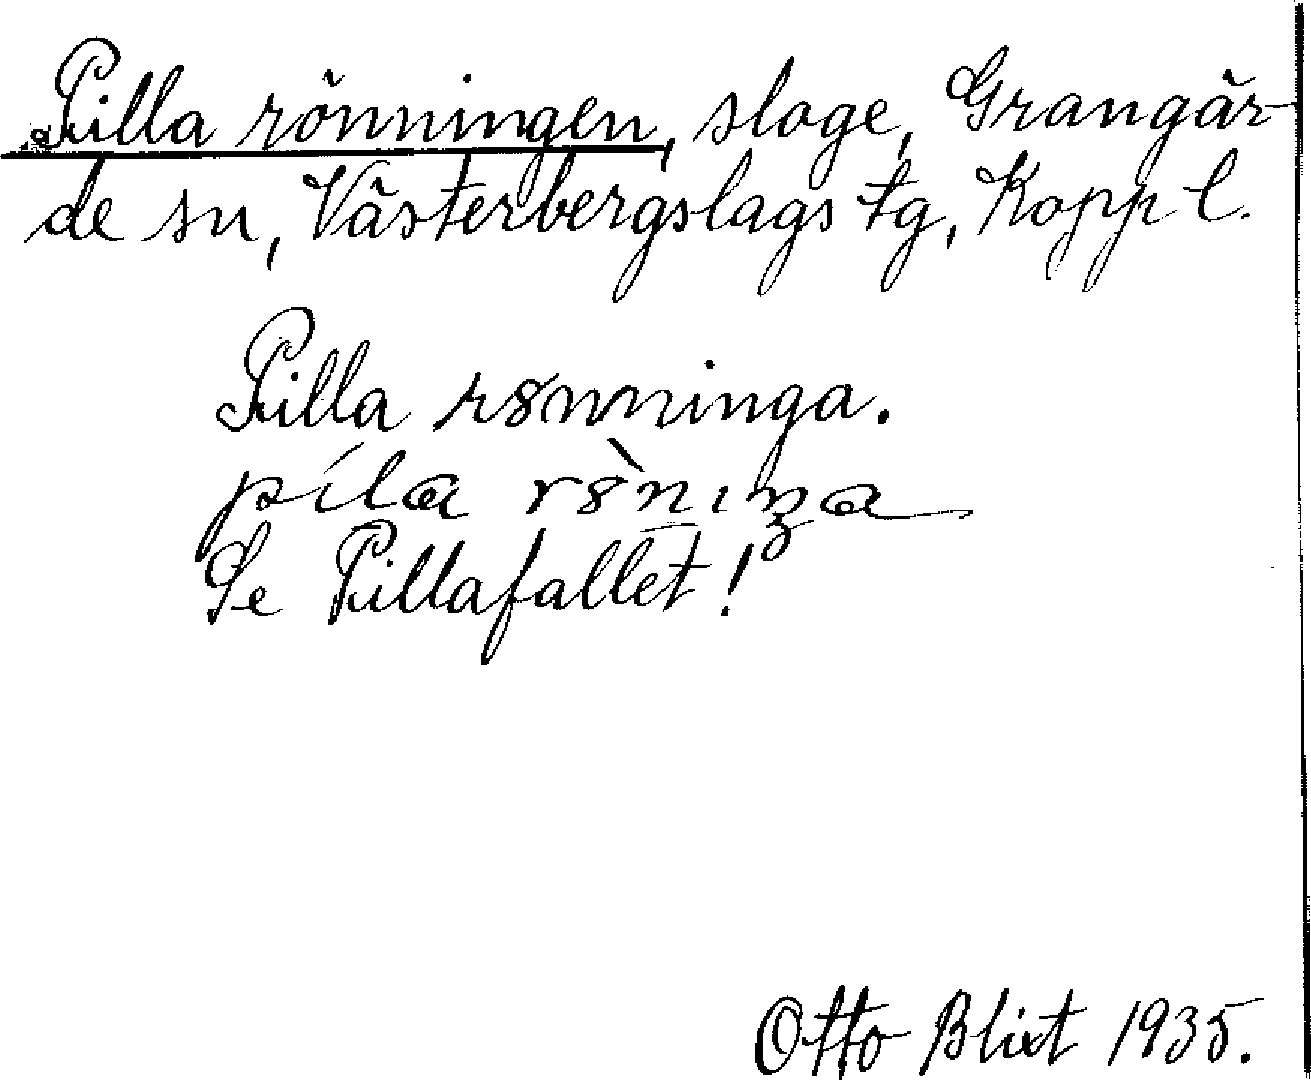 Pilla rönningen, sloge, Grangär-
de sn, Västerbergslags tg, Kopp l.
Pilla rönninga.
Se Pillafallet!
Otto Blixt 1935.